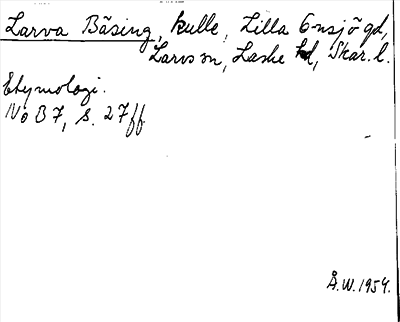 Larva Bäsing, kulle, Lilla 6-nsjö gd,
Larvs sn, Laske hd, Skar. l.
Etymologi.
No B 7, s. 27 ff
Å.W. 1954.